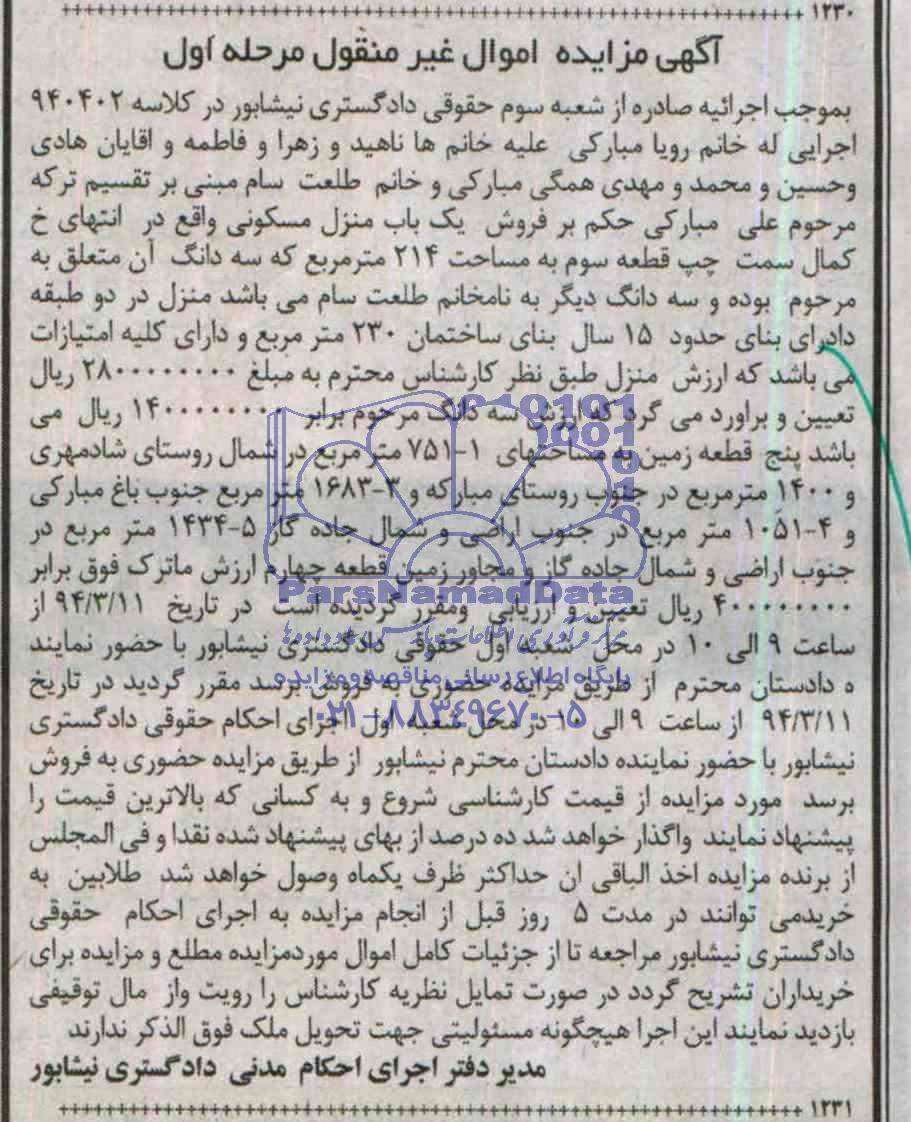 ۱۲۳۰
آگهی مزایده اموال غیر منقول مرحله اول
بموجب اجرائیه صادره از شعبه سوم حقوقی دادگستری نیشابور در کلاسه ۹۴۰۴۰۲
اجرایی له خانم رویا مبارکی علیه خانم ها ناهید و زهرا و فاطمه و اقایان هادی
وحسین و محمد و مهدی همگی مبارکی و خانم طلعت سام مبنی بر تقسیم ترکه
مرحوم علی مبارکی حکم بر فروش یک باب منزل مسکونی واقع در انتهای خ
کمال سمت چپ قطعه سوم به مساحت ۲۱۴ مترمربع که سه دانگ آن متعلق به
مرحوم بوده و سه دانگ دیگر به نامخانم طلعت سام می باشد منزل در دو طبقه
دادرای بنای حدود ۱۵ سال بنای ساختمان ۲۳۰ متر مربع و دارای کلیه امتیازات
می باشد که ارزش منزل طبق نظر کارشناس محترم به مبلغ ۲۸۰۰۰۰۰۰۰۰ ریال
تعیین و براورد می گرد که ارزش سه دانگ مرحوم برابر ۱۴۰۰۰۰۰۰۰۰ ریال می
باشد پنج قطعه زمین به مساحتهای ۱-۷۵۱ متر مربع در شمال روستای شادمهری
و ۱۴۰۰ مترمربع در جنوب روستای مبارکه و ۳-۱۶۸۳ متر مربع جنوب باغ مبارکی
و ۴-۱۰۵۱ متر مربع در جنوب اراضی و شمال جاده گاز ۵-۱۴۳۴ متر مربع در
جنوب اراضی و شمال جاده گاز و مجاور زمین قطعه چهارم ارزش ماترک فوق برابر
۴۰۰۰۰۰۰۰۰ ریال تعیین و ارزیابی ومقرر گردیده است در تاریخ ۹۴/۳/۱۱ از
ParsNamadData
ساعت ۹ الی ۱۰ در محل شعبه اول حقوقی دادگستری نیشابور با حضور نمایند
ه دادستان محترم از طریق مزایده حضوری به فروش برسد مقرر گردید در تاریخ
پایگاه اطلاع رسانی مناقصه و مزایده
۹۴/۳/۱۱ از ساعت ۹ الی ۱۰ در محل شعبه اول اجرای احکام حقوقی دادگستری
۰۲۱-۸۸۳۴۹۶۷۰-۵
نیشابور با حضور نماینده دادستان محترم نیشابور از طریق مزایده حضوری به فروش
برسد مورد مزایده از قیمت کارشناسی شروع و به کسانی که بالاترین قیمت را
پیشنهاد نمایند واگذار خواهد شد ده درصد از بهای پیشنهاد شده نقدا و فی المجلس
از برنده مزایده اخذ الباقی ان حداکثر ظرف یکماه وصول خواهد شد طلابین به
خریدمی توانند در مدت ۵ روز قبل از انجام مزایده به اجرای احکام حقوقی
دادگستری نیشابور مراجعه تا از جزئیات کامل اموال موردمزایده مطلع و مزایده برای
خریداران تشریح گردد در صورت تمایل نظریه کارشناس را رویت واز مال توقیفی
بازدید نمایند این اجرا هیچگونه مسئولیتی جهت تحویل ملک فوق الذکر ندارند
مدیر دفتر اجرای احکام مدنی دادگستری نیشابور
۱۲۳۱